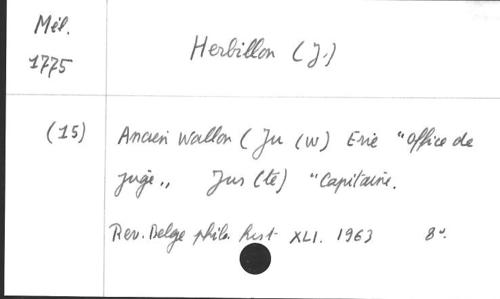 Mél.
1775
Herbillon (J.)
(15)
Ancien wallon (Ju (w) Erie "office de
juge„ Jus (té) "Capitaine.
Rev. Belge philo. hist. XLI. 1963 8°.